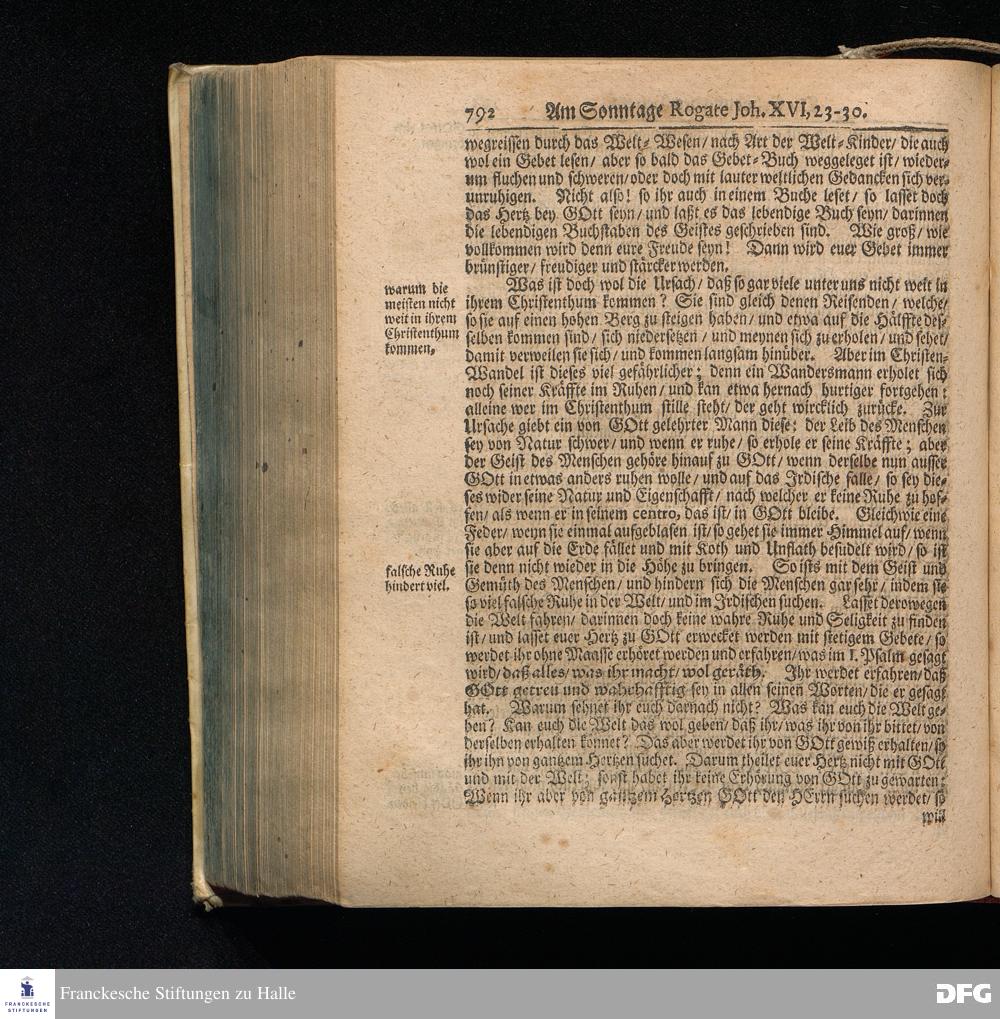 792 Am Sonntage Rogate Joh. XVI, 23-30.
wegreissen durch das Welt-Wesen/ nach Art der Welt-Kinder/ die auch
wol ein Gebet lesen/ aber so bald das Gebet-Buch weggeleget ist/ wieder-
um fluchen und schweren/ oder doch mit lauter weltlichen Gedancken sich ver-
unruhigen. Nicht also! so ihr auch in einem Buche leset/ so lasset doch
das Hertz bey GOtt seyn/ und laßt es das lebendige Buch seyn/ darinnen
die lebendigen Buchstaben des Geistes geschrieben sind. Wie groß/ wie
vollkommen wird denn eure Freude seyn! Dann wird euer Gebet immer
brünstiger/ freudiger und stärcker werden.
warum die
meisten nicht
weit in ihrem
Christenthum
kommen.
Was ist doch wol die Ursach/ daß so gar viele unter uns nicht weit in
ihrem Christenthum kommen? Sie sind gleich denen Reisenden/ welche/
so sie auf einen hohen Berg zu steigen haben/ und etwa auf die Hälffte des-
selben kommen sind/ sich niedersetzen/ und meynen sich zu erholen/ und sehet/
damit verweilen sie sich/ und kommen langsam hinüber. Aber im Christen-
Wandel ist dieses viel gefährlicher; denn ein Wandersmann erholet sich
noch seiner Kräffte im Ruhen/ und kan etwa hernach hurtiger fortgehen:
alleine wer im Christenthum stille steht/ der geht wircklich zurücke. Zur
Ursache giebt ein von GOtt gelehrter Mann diese: der Leib des Menschen
sey von Natur schwer/ und wenn er ruhe/ so erhole er seine Kräffte; aber
der Geist des Menschen gehöre hinauf zu GOtt/ wenn derselbe nun ausser
GOtt in etwas anders ruhen wolle/ und auf das Irdische falle/ so sey die-
ses wider seine Natur und Eigenschafft/ nach welcher er keine Ruhe zu hof-
fen/ als wenn er in seinem centro, das ist/ in GOtt bleibe. Gleichwie eine
Feder/ wenn sie einmal aufgeblasen ist/ so gehet sie immer Himmel auf/ wenn
sie aber auf die Erde fället und mit Koth und Unflath besudelt wird/ so ist
falsche Ruhe
hindert viel.
sie denn nicht wieder in die Höhe zu bringen. So ists mit dem Geist und
Gemüth des Menschen/ und hindern sich die Menschen gar sehr/ indem sie
so viel falsche Ruhe in der Welt/ und im Irdischen suchen. Lasset derowegen
die Welt fahren/ darinnen doch keine wahre Ruhe und Seligkeit zu finden
ist/ und lasset euer Hertz zu GOtt erwecket werden mit stetigem Gebete/ so
werdet ihr ohne Maasse erhöret werden und erfahren/ was im I. Psalm gesagt
wird/ daß alles/ was ihr macht/ wol geräth. Ihr werdet erfahren/ daß
GOtt getreu und wahrhafftig sey in allen seinen Worten/ die er gesagt
hat. Warum sehnet ihr euch darnach nicht? Was kan euch die Welt ge-
ben? Kan euch die Welt das wol geben/ daß ihr/ was ihr von ihr bittet/ von
derselben erhalten könnet? Das aber werdet ihr von GOtt gewiß erhalten/ so
ihr ihn von gantzem Hertzen suchet. Darum theilet euer Hertz nicht mit GOtt
und mit der Welt; sonst habet ihr keine Erhörung von GOtt zu gewarten:
Wenn ihr aber von gantzem Hertzen GOtt den HErrn suchen werdet/ so
will
FRANCKESCHE
STIFTUNGEN
Franckesche Stiftungen zu Halle
DFG